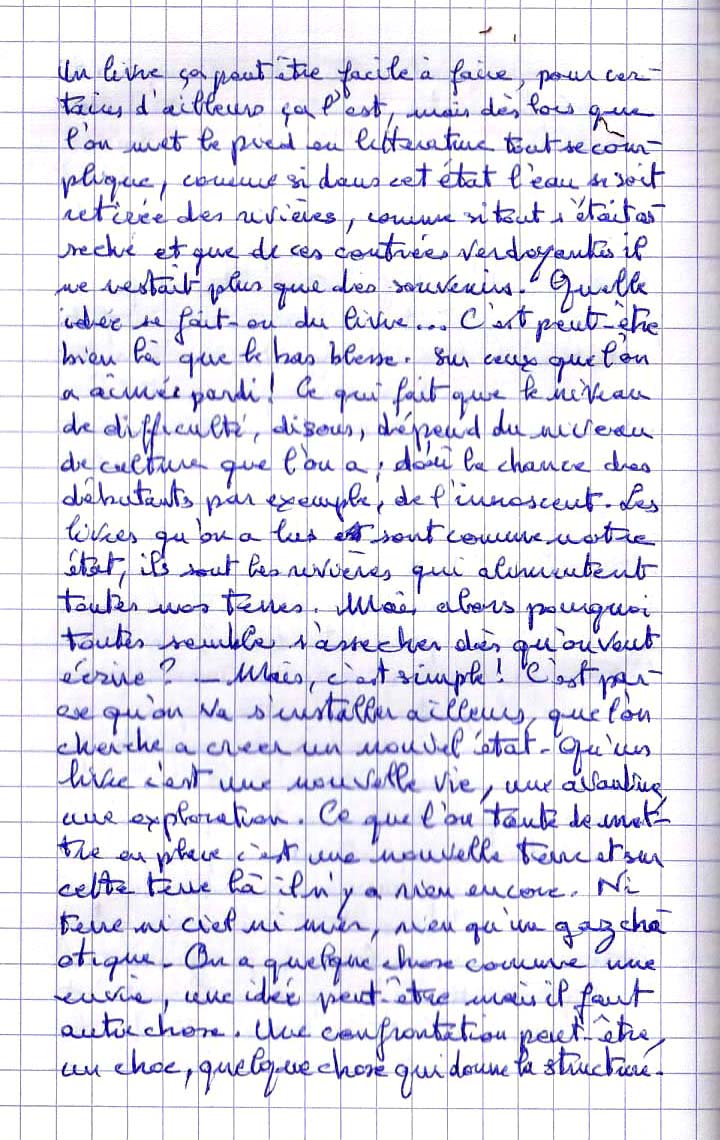 Un livre ça peut être facile à faire, pour cer-
tains d'ailleurs ça l'est, mais dès lors que
l'on met le pied en littérature tout se com-
plique, comme si dans cet état l'eau se soit
retirée des rivières, comme si tout s'était as
seché et que de ces contrées verdoyantes il
ne restait plus que des souvenirs. Quelle
idée se fait-on du livre... C'est peut-être
bien là que le bas blesse. Sur ceux que l'on
a aimés pardi! Ce qui fait que le niveau
de difficulté, disons, dépend du niveau
de culture que l'on a; d'où la chance des
débutants par exemple, de l'innoscent. Les
livres qu'on a lus sont comme notre
état, ils sont les rivières qui alimentent
toutes nos terres. Mais alors pourquoi
toutes semble s'assecher dès qu'on veut
écrire? - Mais, c'est simple! C'est par-
ce qu'on va s'installer ailleurs, que l'on
cherche a creer un nouvel état. Qu'un
livre c'est une nouvelle vie, une avanture,
une exploration. Ce que l'on tente de met-
tre en place c'est une nouvelle terre et sur
cette terre là il n'y a rien encore. Ni
terre ni ciel ni mer, rien qu'un gaz cha
otique. On a quelque chose comme une
envie, une idée peut-être mais il faut
autre chose. Une confrontation peut-être,
un choc, quelque chose qui donne la structure.